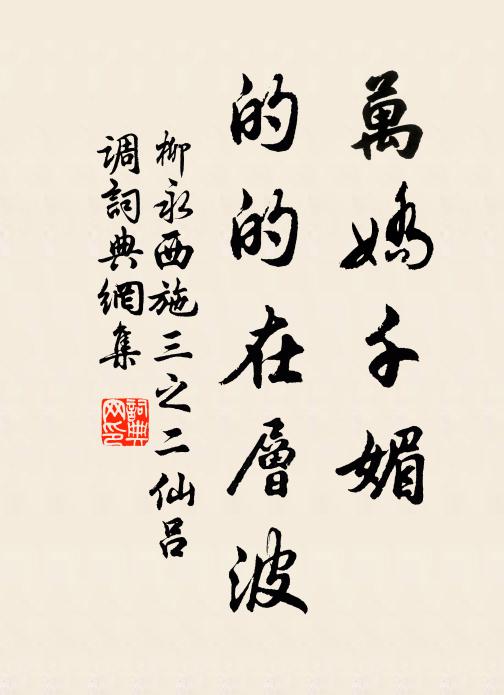 萬嬌千媚
的的在層波
柳永西施三之二仙吕
调詞典網集
詞典
网印